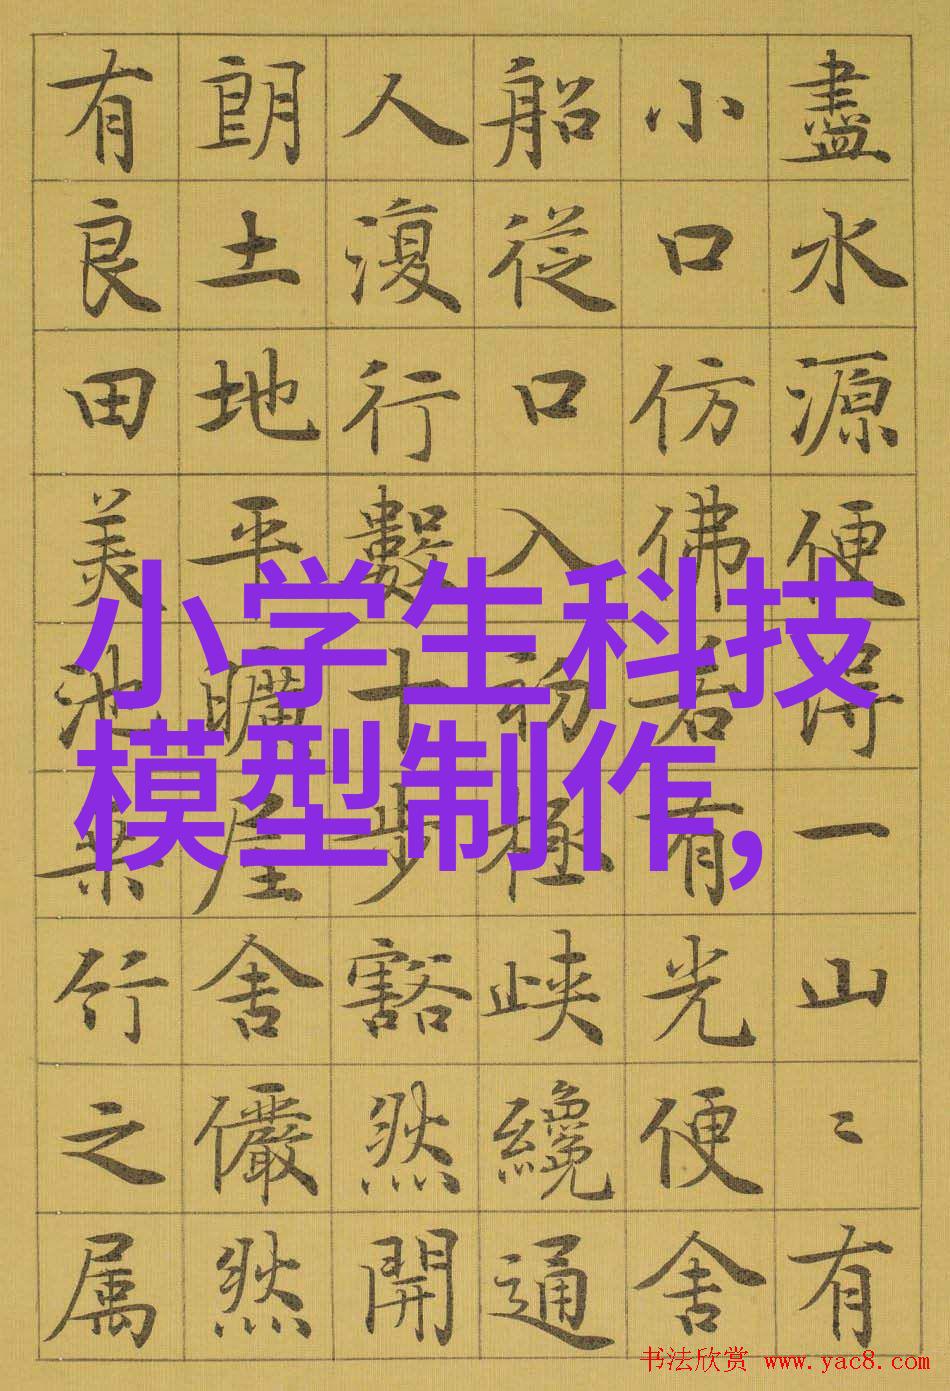 盡水源便得一山〻有
小口仿佛若有光便舍
船從口入初極峽纔通
人復行數十步豁然開
朗土地平曠屋舍儼然
有良田美池桑竹之属
小学生科技
模型制作,
书法欣赏 www.yac8.com